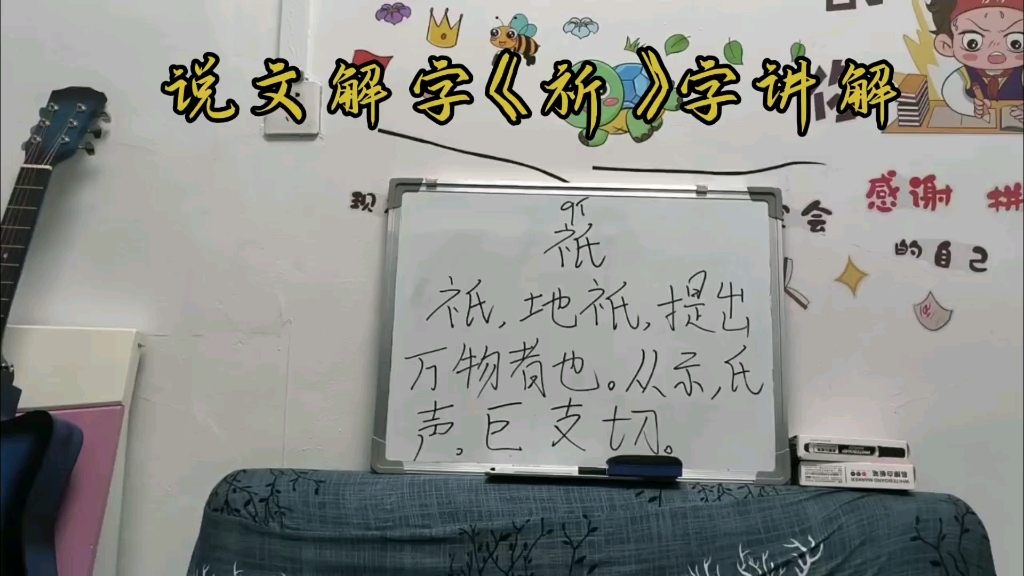 说文解字《祈》字讲解
感谢 拼
现
会
的自己
qí
祇
祇,地祇,提出
万物者也。从示,氏
声。巨支切。